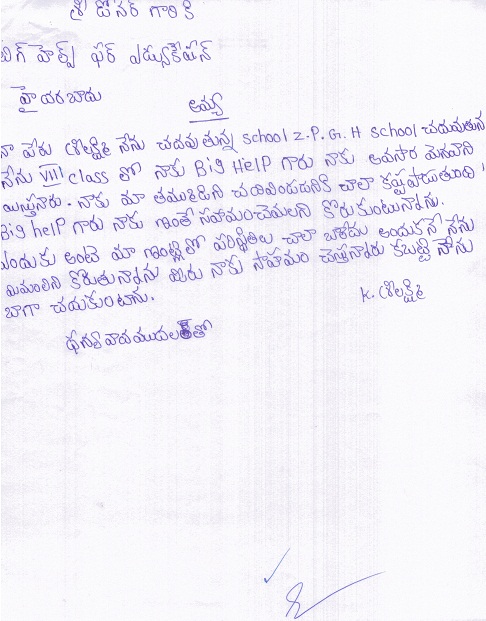 శ్రీ డోనర్ గారికి
బిగ్ హెల్ప్ ఫర్ ఎడ్యుకేషన్
హైయరబాదు
అయ్య
నా పేరు శ్రీలక్ష్మి నేను చదువుతున్న school Z.P.G.H School చదువుతున
నేను VIII class లో నాకు Big Help గారు నాకు అవసార మెనవాని
యిస్తునారు. నాకు మా తముడిని చదివించడానికి చాలా కష్టపాడుతుంది,
Big help గారు నాకు ఇంతే సహయంచెమలని కోరుకుంటునాను.
ఎందుకు అంటె మా ఇంట్లలో పరిస్థితిలు చాలా బాలేదు అందుకనే నేను
యిమంలిని కోరుతునాను మీరు నాకు సాహయం చెస్తునారు కబట్టి నేను
బాగా చదుకుంటాను.
K. శ్రీలక్ష్మి
ధన్యవాదములతో